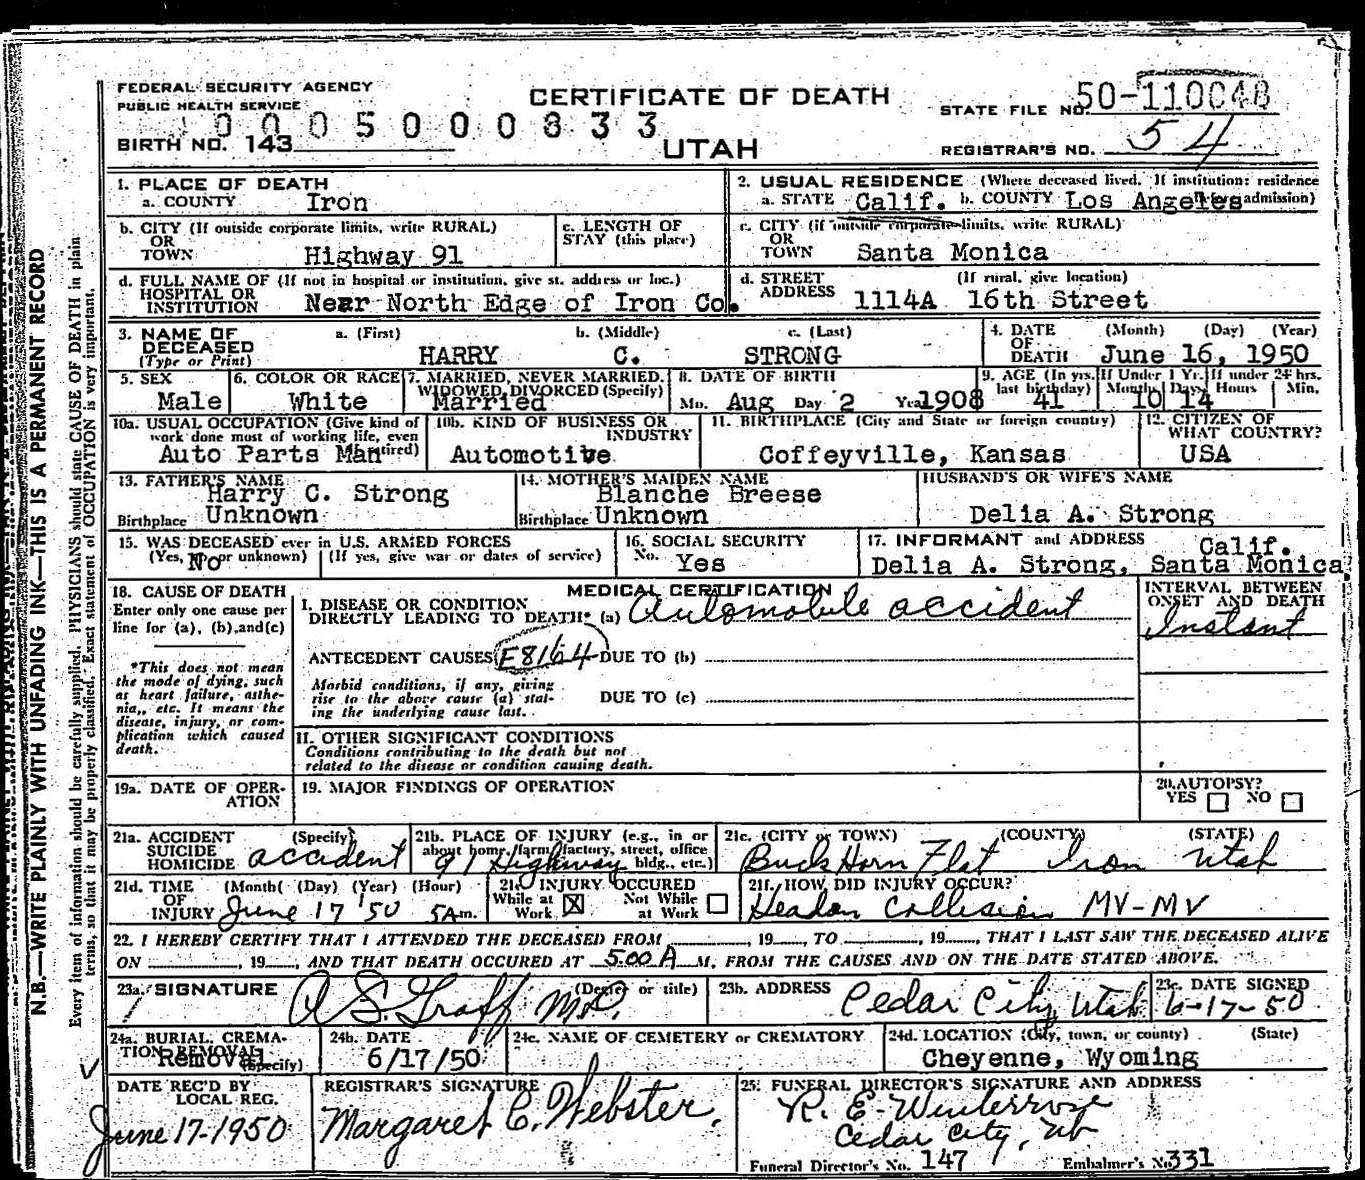 FEDERAL SECURITY AGENCY
PUBLIC HEALTH SERVICE
CERTIFICATE OF DEATH
STATE FILE NO. 50-110048
0005000833
BIRTH NO. 143
UTAH
REGISTRAR'S NO. 54
1. PLACE OF DEATH
a. COUNTY Iron
2. USUAL RESIDENCE (Where deceased lived. If institution: residence
a. STATE Calif. b. COUNTY Los Angeles admission)
b. CITY (If outside corporate limits, write RURAL)
OR
TOWN Highway 91
c. LENGTH OF
STAY (this place)
c. CITY (if outside corporate limits, write RURAL)
OR
TOWN Santa Monica
d. FULL NAME OF (If not in hospital or institution, give st. address or loc.)
HOSPITAL OR
INSTITUTION Near North Edge of Iron Co.
d. STREET (If rural, give location)
ADDRESS 1114A 16th Street
3. NAME OF a. (First) b. (Middle) c. (Last)
DECEASED
(Type or Print) HARRY C. STRONG
4. DATE (Month) (Day) (Year)
OF
DEATH June 16, 1950
5. SEX
Male
6. COLOR OR RACE
White
7. MARRIED, NEVER MARRIED,
WIDOWED, DIVORCED (Specify)
Married
8. DATE OF BIRTH
Mo. Aug Day 2 Year 1908
9. AGE (In yrs. If Under 1 Yr. If under 24 hrs.
last birthday) Months Days Hours Min.
41 10 14
10a. USUAL OCCUPATION (Give kind of
work done most of working life, even
Auto Parts Man
10b. KIND OF BUSINESS OR
INDUSTRY
Automotive
11. BIRTHPLACE (City and State or foreign country)
Coffeyville, Kansas
12. CITIZEN OF
WHAT COUNTRY?
USA
13. FATHER'S NAME
Harry C. Strong
Birthplace Unknown
14. MOTHER'S MAIDEN NAME
Blanche Breese
Birthplace Unknown
HUSBAND'S OR WIFE'S NAME
Delia A. Strong
15. WAS DECEASED ever in U.S. ARMED FORCES
(Yes, No or unknown) (If yes, give war or dates of service)
16. SOCIAL SECURITY
No. Yes
17. INFORMANT and ADDRESS Calif.
Delia A. Strong, Santa Monica
18. CAUSE OF DEATH
Enter only one cause per
line for (a), (b), and (c)
*This does not mean
the mode of dying, such
as heart failure, asthe-
nia, etc. It means the
disease, injury, or com-
plication which caused
death.
MEDICAL CERTIFICATION
I. DISEASE OR CONDITION
DIRECTLY LEADING TO DEATH* (a) Automobile accident
ANTECEDENT CAUSES E8164 DUE TO (b)
Morbid conditions, if any, giving
rise to the above cause (a) stat-
ing the underlying cause last.
DUE TO (c)
II. OTHER SIGNIFICANT CONDITIONS
Conditions contributing to the death but not
related to the disease or condition causing death.
INTERVAL BETWEEN
ONSET AND DEATH
Instant
19a. DATE OF OPER-
ATION
19. MAJOR FINDINGS OF OPERATION
20. AUTOPSY?
YES NO
21a. ACCIDENT (Specify)
SUICIDE
HOMICIDE accident
21b. PLACE OF INJURY (e.g., in or
about home, farm, factory, street, office
bldg., etc.)
91 Highway
21c. (CITY or TOWN) (COUNTY) (STATE)
BuckHorn Flat Iron Utah
21d. TIME (Month) (Day) (Year) (Hour)
OF
INJURY June 17 '50 5 Am.
21e. INJURY OCCURED
While at Work X Not While at Work
21f. HOW DID INJURY OCCUR?
Headon Collision MV-MV
22. I HEREBY CERTIFY THAT I ATTENDED THE DECEASED FROM , 19 , TO , 19 , THAT I LAST SAW THE DECEASED ALIVE
ON , 19 , AND THAT DEATH OCCURED AT 5:00 A M, FROM THE CAUSES AND ON THE DATE STATED ABOVE.
23a. SIGNATURE (Degree or title)
A S. Graff M.D.
23b. ADDRESS Cedar City, Utah
23c. DATE SIGNED
6-17-50
24a. BURIAL, CREMA-
TION REMOVAL (Specify)
Removal
24b. DATE
6/17/50
24c. NAME OF CEMETERY or CREMATORY
24d. LOCATION (City, town, or county) (State)
Cheyenne, Wyoming
DATE REC'D BY
LOCAL REG.
June 17-1950
REGISTRAR'S SIGNATURE
Margaret C. Webster
25. FUNERAL DIRECTOR'S SIGNATURE AND ADDRESS
R. E. Winterrose
Cedar City, Ut
Funeral Director's No. 147 Embalmer's No. 331
N.B.—WRITE PLAINLY WITH UNFADING INK—THIS IS A PERMANENT RECORD
Every item of information should be carefully supplied. PHYSICIANS should state CAUSE OF DEATH in plain
terms, so that it may be properly classified. Exact statement of OCCUPATION is very important.